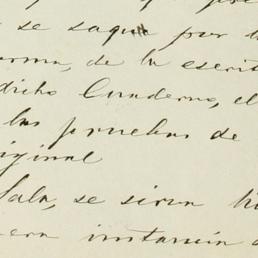 se saque por
orma, de la escrit
dicho Cuaderno, el
las pruebas de
riginal
Sala, se sirva
mera instancia